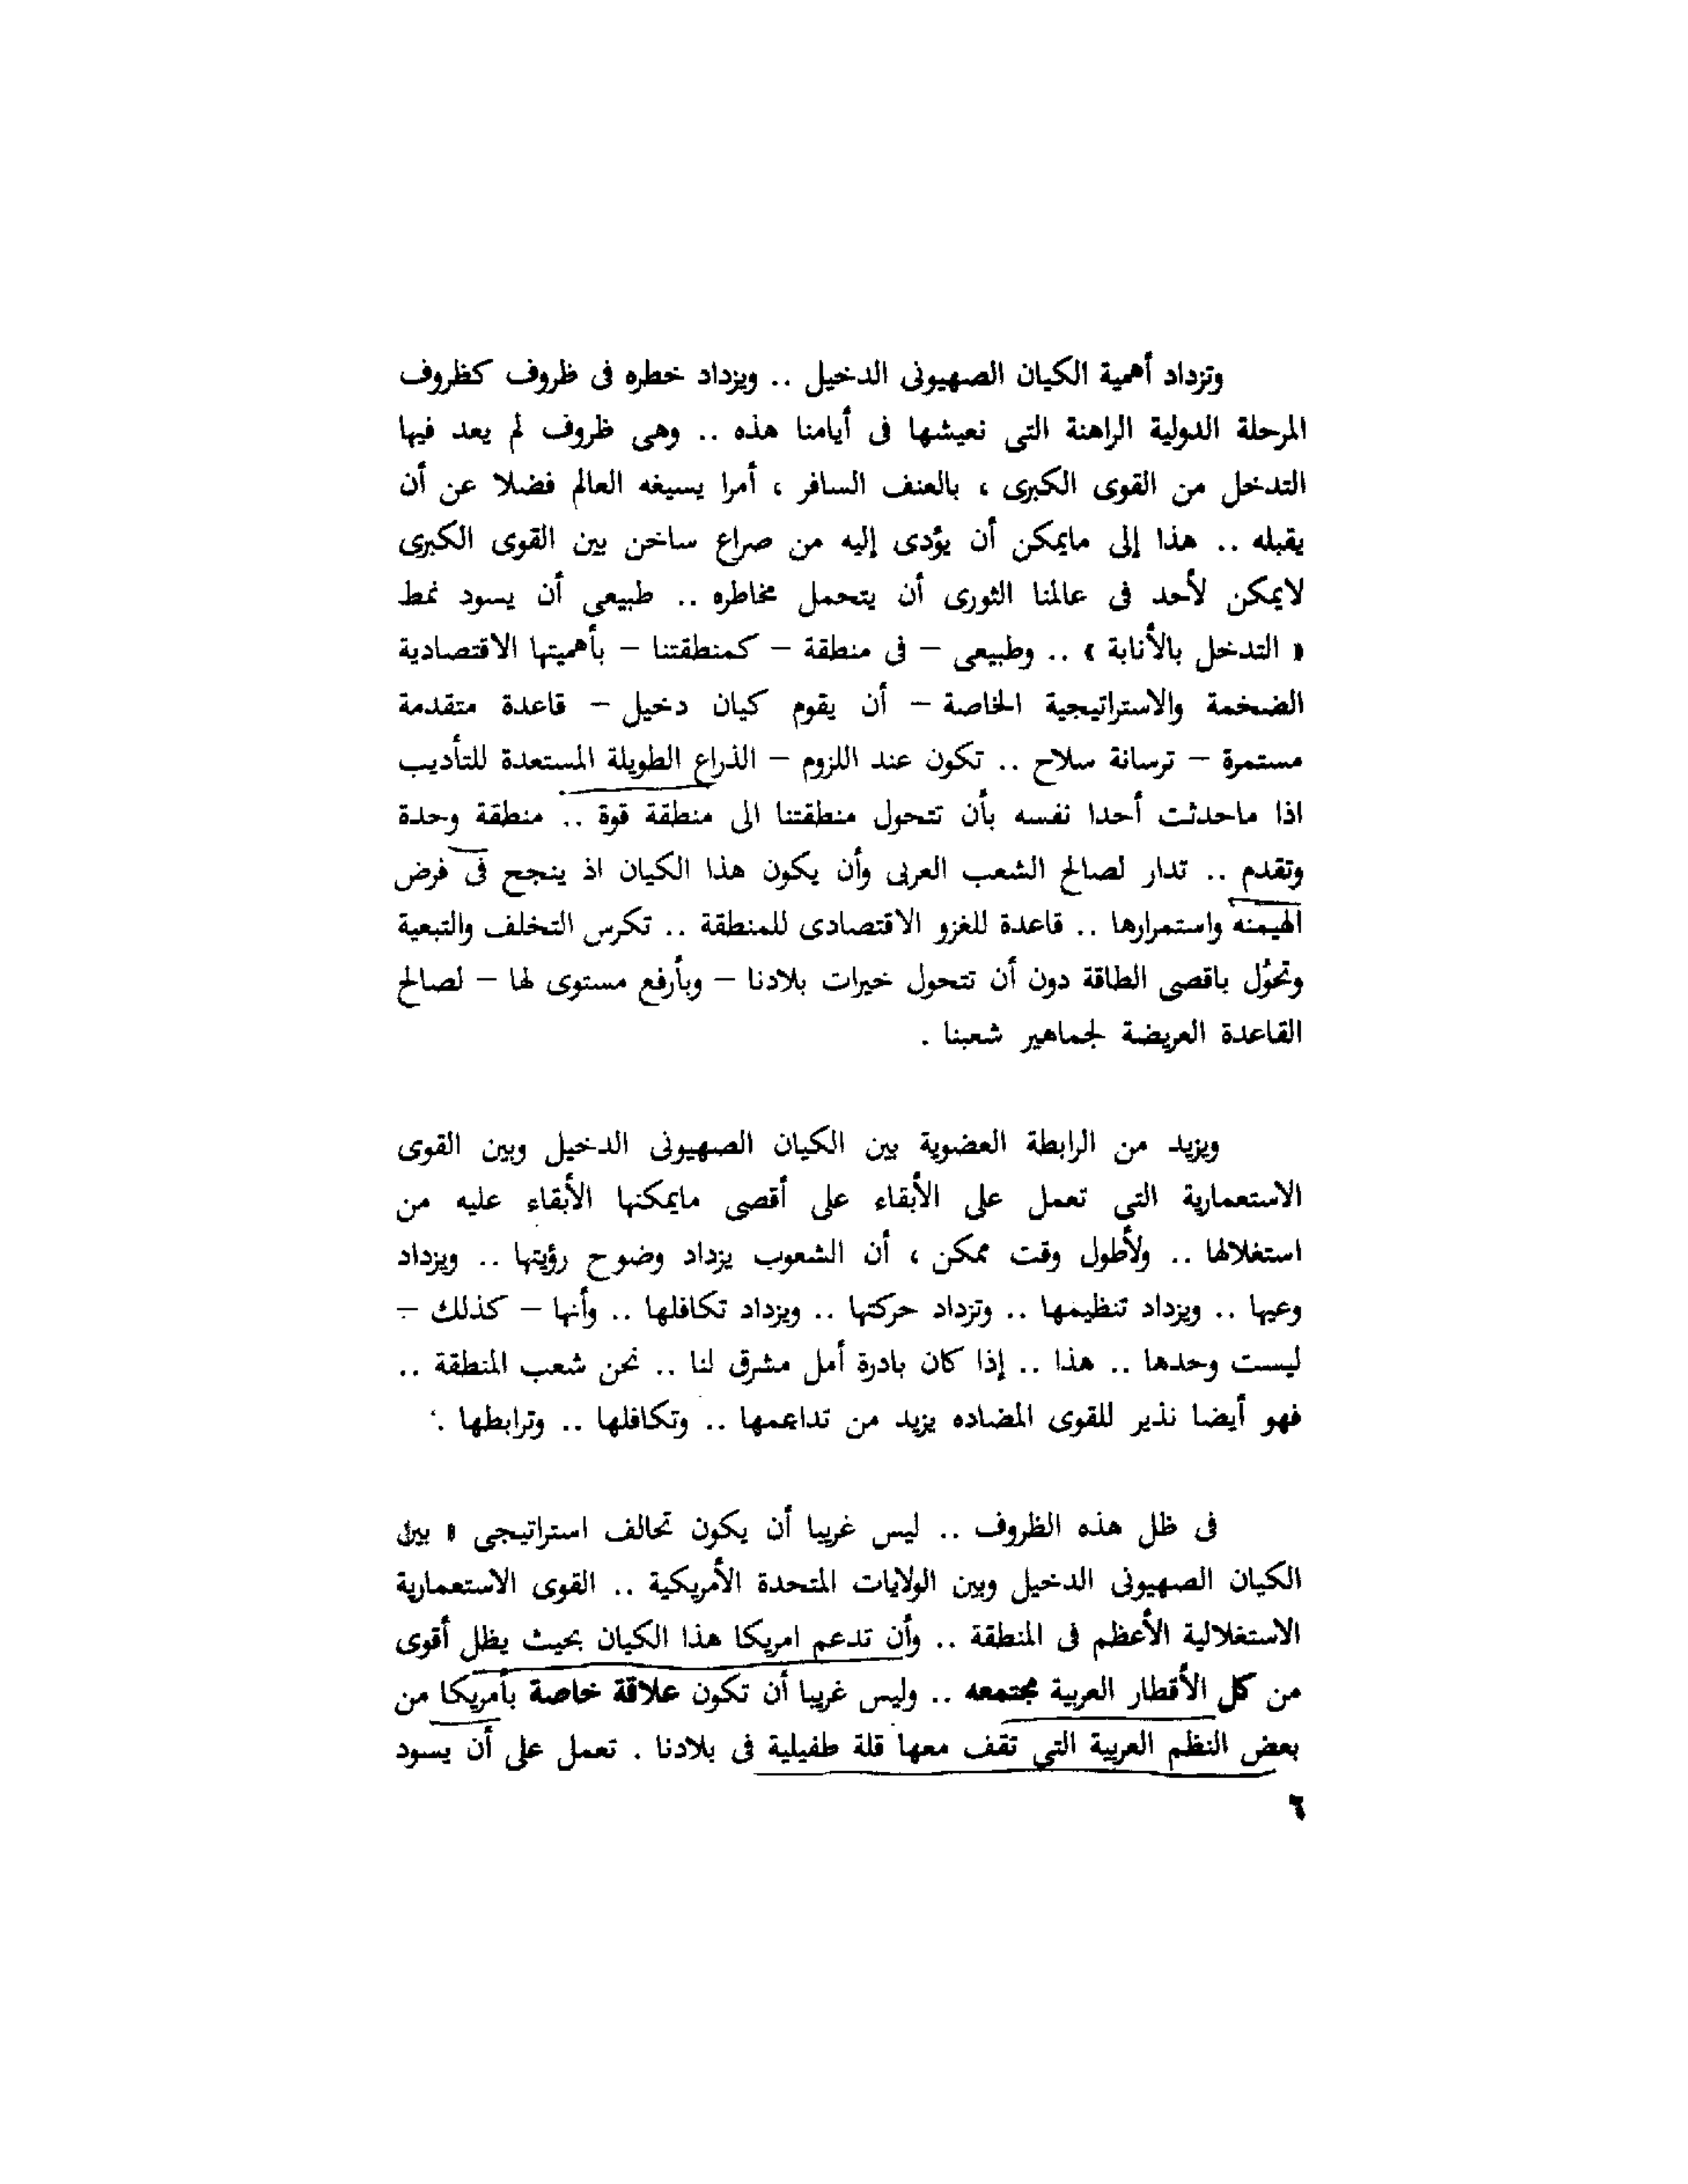 وتزداد أهمية الكيان الصهيونى الدخيل .. ويزداد خطره فى ظروف كظروف
المرحلة الدولية الراهنة التى نعيشها فى أيامنا هذه .. وهى ظروف لم يعد فيها
التدخل من القوى الكبرى ، بالعنف السافر ، أمرا يسيغه العالم فضلا عن أن
يقبله .. هذا إلى مايمكن أن يؤدى إليه من صراع ساخن بين القوى الكبرى
لايمكن لأحد فى عالمنا الثورى أن يتحمل مخاطره .. طبيعى أن يسود نمط
« التدخل بالأنابة » .. وطبيعى – فى منطقة – كمنطقتنا – بأهميتها الاقتصادية
الضخمة والاستراتيجية الخاصة – أن يقوم كيان دخيل – قاعدة متقدمة
مستمرة – ترسانة سلاح .. تكون عند اللزوم – الذراع الطويلة المستعدة للتأديب
اذا ماحدثت أحدا نفسه بأن تتحول منطقتنا الى منطقة قوة .. منطقة وحدة
وتقدم .. تدار لصالح الشعب العربى وأن يكون هذا الكيان اذ ينجح فى فرض
الهيمنه واستمرارها .. قاعدة للغزو الاقتصادى للمنطقة .. تكرس التخلف والتبعية
وتحوُل باقصى الطاقة دون أن تتحول خيرات بلادنا – وبأرفع مستوى لها – لصالح
القاعدة العريضة لجماهير شعبنا .
ويزيد من الرابطة العضوية بين الكيان الصهيونى الدخيل وبين القوى
الاستعمارية التى تعمل على الأبقاء على أقصى مايمكنها الأبقاء عليه من
استغلالها .. ولأطول وقت ممكن ، أن الشعوب يزداد وضوح رؤيتها .. ويزداد
وعيها .. ويزداد تنظيمها .. وتزداد حركتها .. ويزداد تكافلها .. وأنها – كذلك –
ليست وحدها .. هذا .. إذا كان بادرة أمل مشرق لنا .. نحن شعب المنطقة ..
فهو أيضا نذير للقوى المضاده يزيد من تداعمها .. وتكافلها .. وترابطها .
فى ظل هذه الظروف .. ليس غريبا أن يكون تحالف استراتيجى « بين
الكيان الصهيونى الدخيل وبين الولايات المتحدة الأمريكية .. القوى الاستعمارية
الاستغلالية الأعظم فى المنطقة .. وأن تدعم امريكا هذا الكيان بحيث يظل أقوى
من كل الأقطار العربية مجتمعه .. وليس غريبا أن تكون علاقة خاصة بأمريكا من
بعض النظم العربية التى تقف معها قلة طفيلية فى بلادنا . تعمل على أن يسود
٦